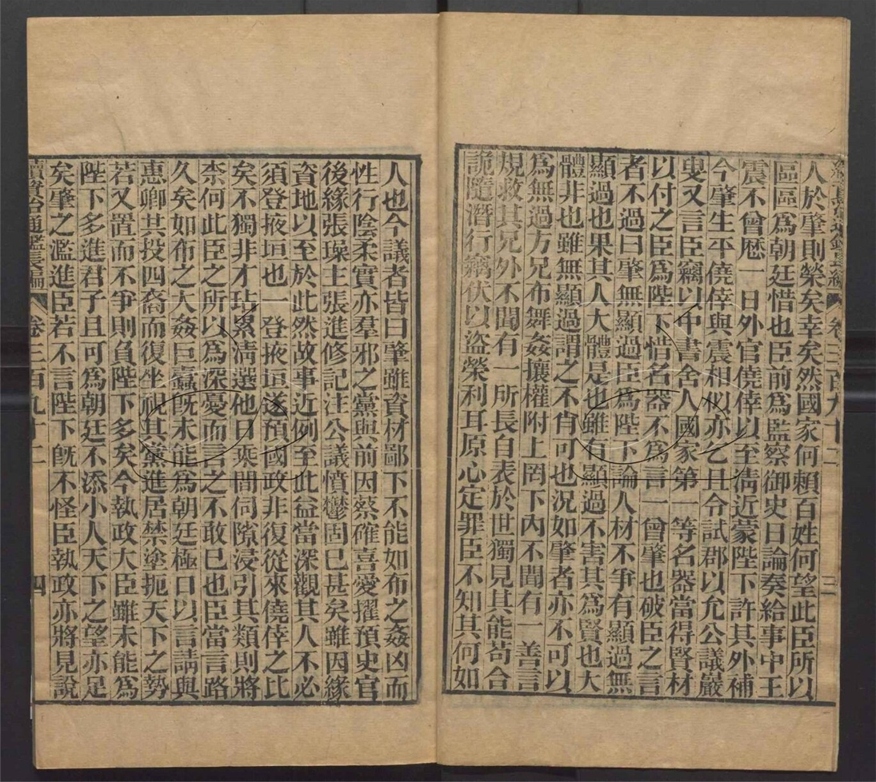 人於肇則榮矣幸矣然國家何賴百姓何望此臣所以
區區爲朝廷惜也臣前爲監察御史日論奏給事中王
震不曾歷一日外官僥倖以至清近蒙陛下許其外補
今肇生平僥倖與震相似亦乞且令試郡以允公議巖
叟又言臣竊以中書舍人國家第一等名器當得賢材
以付之臣爲陛下惜名器不爲言一曾肇也破臣之言
者不過曰肇無顯過臣爲陛下論人材不爭有顯過無
顯過也果其人大體是也雖有顯過不害其爲賢也大
體非也雖無顯過謂之不肖可也況如肇者亦不可以
爲無過方兄布舞姦攘權附上罔下內不聞有一善言
規救其兄外不聞有一所長自表於世獨見其能苟合
詭隨潛行竊伏以盜榮利耳原心定罪臣不知其何如
卷三百九十二
三
人也今議者皆曰肇雖資材鄙下不能如布之姦凶而
性行陰柔實亦羣邪之黨與前因蔡確喜愛擢預史官
後緣張璪主張進修記注公議憤鬱固已甚矣雖因緣
資地以至於此然故事近例至此益當深觀其人不必
須登掖垣也一登掖垣遂預國政非復從來僥倖之比
矣不獨非才玷累清選他日乘間伺隙浸引其類則將
柰何此臣之所以爲深憂而言之不敢已也臣當言路
久矣如布之大姦巨蠹旣未能爲朝廷極口以言請與
惠卿其投四裔而復坐視其黨進居禁塗扼天下之勢
若又置而不爭則負陛下多矣今執政大臣雖未能爲
陛下多進君子且可爲朝廷不添小人天下之望亦足
矣肇之濫進臣若不言陛下旣不怪臣執政亦將見說
續資治通鑑長編 卷三百九十二
四